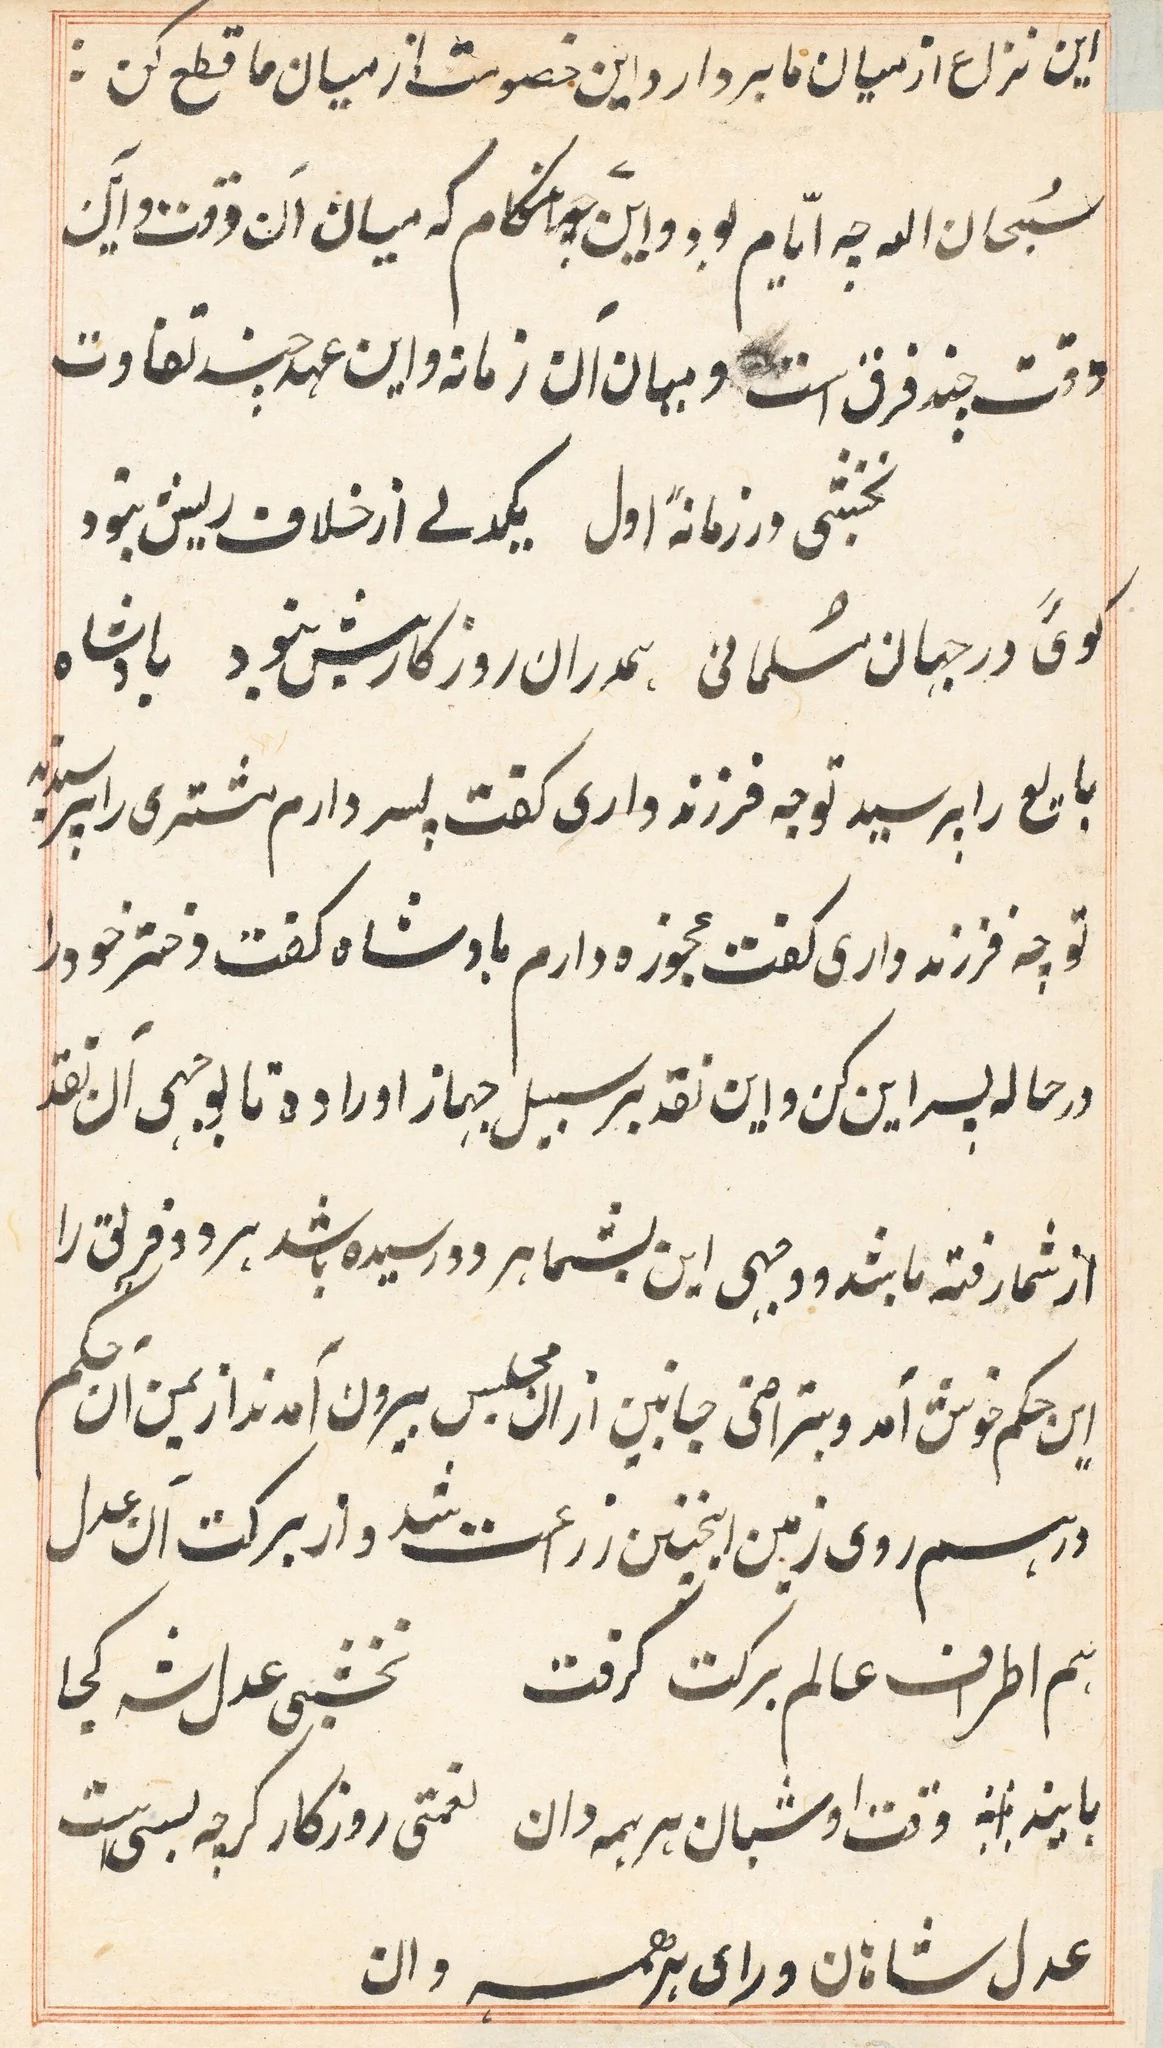 این نزاع از میان ما بردار و این خصومت از میان ما قطع کن :
سُبحان الله چه ایّام بود و این چه هنکام که میان آن وقت و این
وقت چند فرق است و میان آن زمانه و این عهد چند تفاوت
نخشبی در زمانهٔ اول یکدلی از خلاف ریش نبود
کوئ در جهان مُسلمانی همدران روزکار بیش نبود پادشاه
بایع را پرسید تو چه فرزند داری کفت پسر دارم مشتری را پرسیدند
تو چه فرزند داری کفت عجوزه دارم پادشاه کفت دختر خود را
در حاله پسر این کن و این نقد بر سبیل جهاز او را ده تا بوجهی آن نقد
از شما رفته باشد و وجهی این بشما هر دو رسیده باشد هر دو فریق را
این حکم خوش آمد و بتراضی جانبین از ان مجلس بیرون آمدند از یمن آن حکم
در همه روی زمین اینچنین زراعت شد و از برکت آن عدل
هم اطراف عالم برکت کرفت نخشبی عدل شه کجا
یابند وقت او شبان هر همه دان نعمتی روزکار کرچه بسی است
عدل شاهان ورای هر همه دان